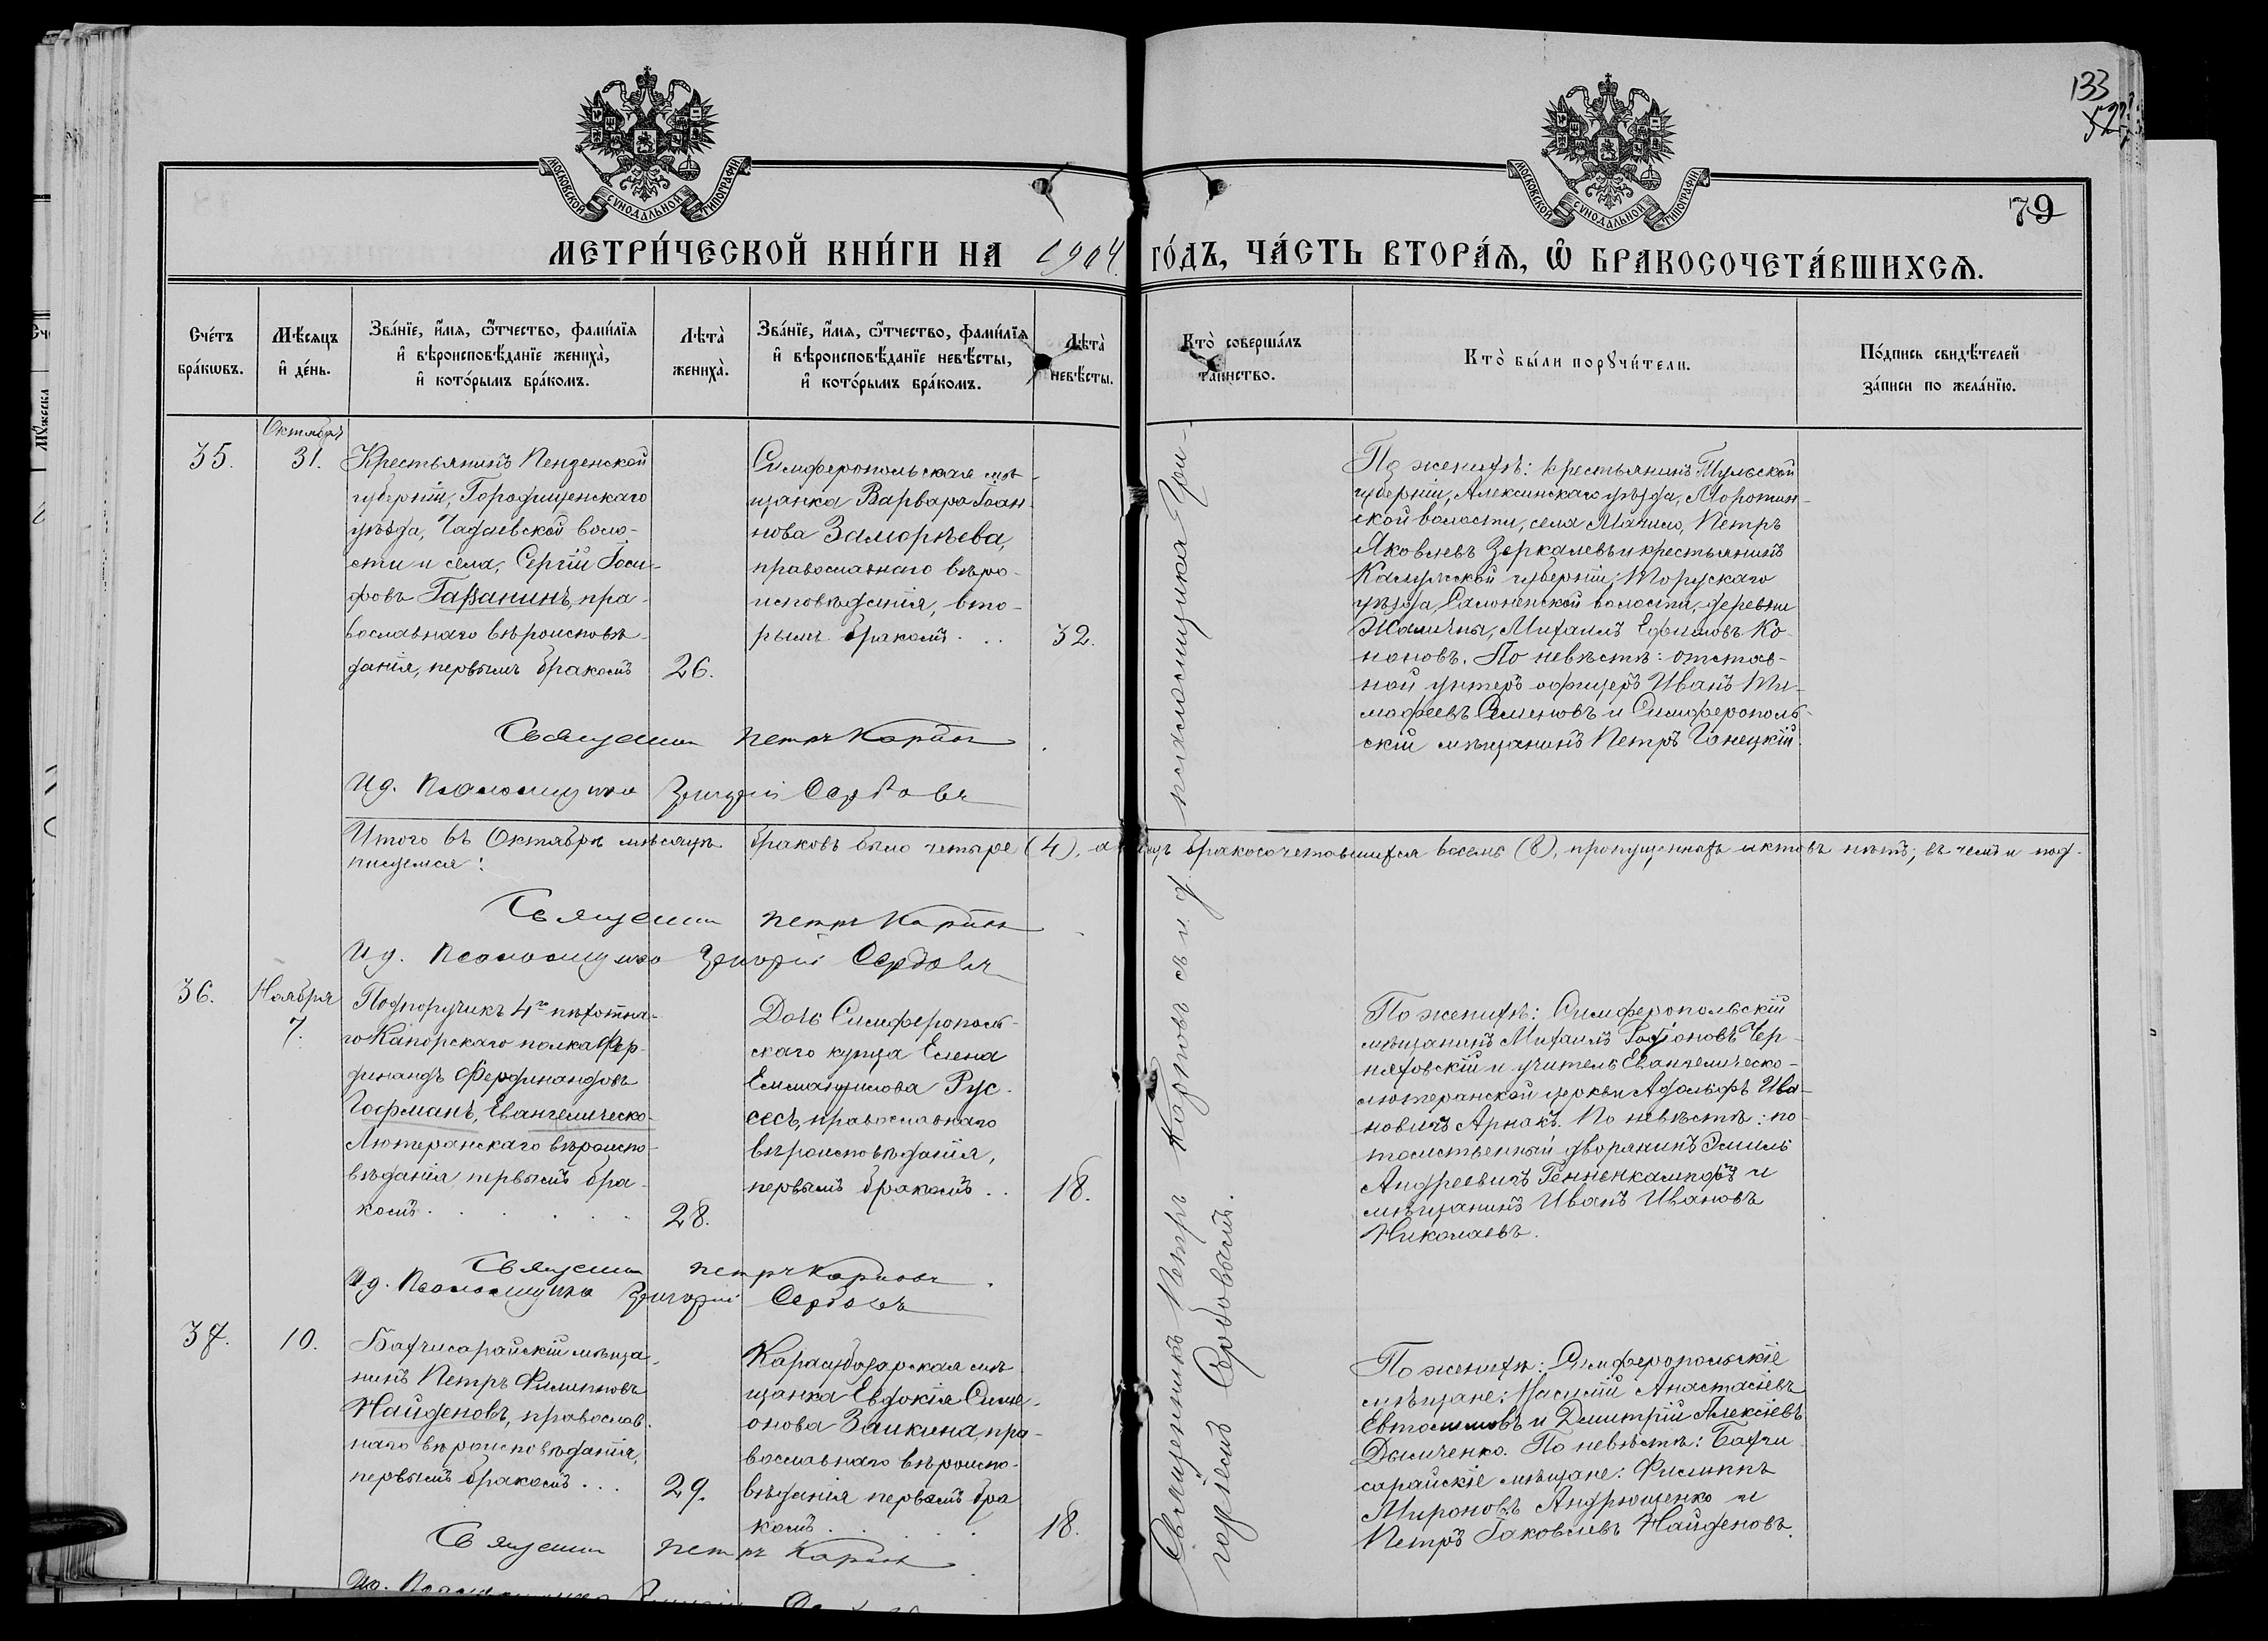 133
79
МОСКОВСКОЙ СѴНОДАЛЬНОЙ ТИПОГРАФІИ
МОСКОВСКОЙ СѴНОДАЛЬНОЙ ТИПОГРАФІИ
МЕТРИ́ЧЕСКОЙ КНИ́ГИ НА 1904. ГО́ДЪ, ЧА́СТЬ ВТОРА́Ѧ, Ѡ҆ БРАКОСОЧЕТА́ВШИХСѦ.
Сче́тъ бра́кѡвъ.
Мѣ́сяцъ и҆ де́нь.
Зва́нїе, и҆́мя, ѻ҆́тчество, фамі́лїя
и҆ вѣроисповѣ́данїе жениха̀,
и҆ кото́рымъ бра́комъ.
Лѣта̀ жениха̀.
Зва́нїе, и҆́мя, ѻ҆́тчество, фамі́лїя
и҆ вѣроисповѣ́данїе невѣ́сты,
и҆ кото́рымъ бра́комъ.
Лѣта̀ невѣ́сты.
Кто̀ соверша́лъ таинство.
Кто̀ бы́ли порꙋчи́тели.
По́дпись свидѣ́телей
за́писи по жела́нїю.
35.
Октября
31.
Крестьянинъ Пензенской
губерніи, Городищенскаго
уѣзда, Чадаевской воло-
сти и села, Сергій Іоси-
фовъ Гаванинъ, пра-
вославнаго вѣроисповѣ-
данія, первымъ бракомъ
26.
Симферопольская мѣ-
щанка Варвара Іоан-
нова Заморѣева,
православнаго вѣро-
исповѣданія, вто-
рымъ бракомъ . .
32.
По женихѣ: крестьянинъ Тульской
губерніи, Алексинскаго уѣзда,
ской волости, села Петръ
Яковлевъ Зеркалевъ и крестьянинъ
Калужской губерніи, Торускаго
уѣзда, волости, деревни
Михаилъ Ефимовъ Ко-
ноновъ. По невѣстѣ: отстав-
ной унтеръ офицеръ Иванъ Ти-
мофеевъ Семеновъ и Симферополь-
скій мѣщанинъ Петръ Ганецкій.
Священникъ Петръ Карповъ
И.д. Псаломщика Григорій Сербовъ
Итого въ Октябрѣ мѣсяцѣ браковъ было четыре (4), а бракосочетавшихся восемь (8), пропущенныхъ актовъ нѣтъ; въ чемъ и под-
писуемся:
Священникъ Петръ Карповъ
И.д. Псаломщика Григорій Сербовъ
36.
Ноября
7.
Подпоручикъ 4го пѣхотна-
го Капорскаго полка Фер-
динандъ Фердинандовъ
Гофманъ, Евангелическо-
Лютеранскаго вѣроиспо-
вѣданія первымъ бра-
комъ . . . . .
28.
Дочь Симферополь-
скаго купца Елена
Еммануилова Рус-
сесъ, православнаго
вѣроисповѣданія,
первымъ бракомъ . .
18.
По женихѣ: Симферопольскій
мѣщанинъ Михаилъ Родіоновъ Чер-
няховскій и учитель Евангелическо-
лютеранской церкви Адольфъ Ива-
новичъ Арнакъ. По невѣстѣ: по-
томственный дворянинъ Эмиль
Андреевичъ Генненкампфъ и
мѣщанинъ Иванъ Ивановъ
Николаевъ.
Священникъ Петръ Карповъ.
И.д. Псаломщика Григорій Сербовъ
37.
10.
Бахчисарайскій мѣща-
нинъ Петръ Филипповъ
Найденовъ, православ-
наго вѣроисповѣданія,
первымъ бракомъ . . .
29.
Карасубазарская мѣ-
щанка Евдокія Симе-
онова Заикина, пра-
вославнаго вѣроиспо-
вѣданія первымъ бра-
комъ . . . .
18.
По женихѣ: Симферопольскіе
мѣщане: Василій Анастасіевъ
и Димитрій Алексіевъ
Дымченко. По невѣстѣ: Бахчи-
сарайскіе мѣщане: Филиппъ
Мироновъ Андрющенко и
Петръ Іаковлевъ Найденовъ.
Священникъ Петръ Карповъ
Священникъ Петръ Карповъ съ и.д. псаломщика Гри-
горіемъ Сербовымъ.